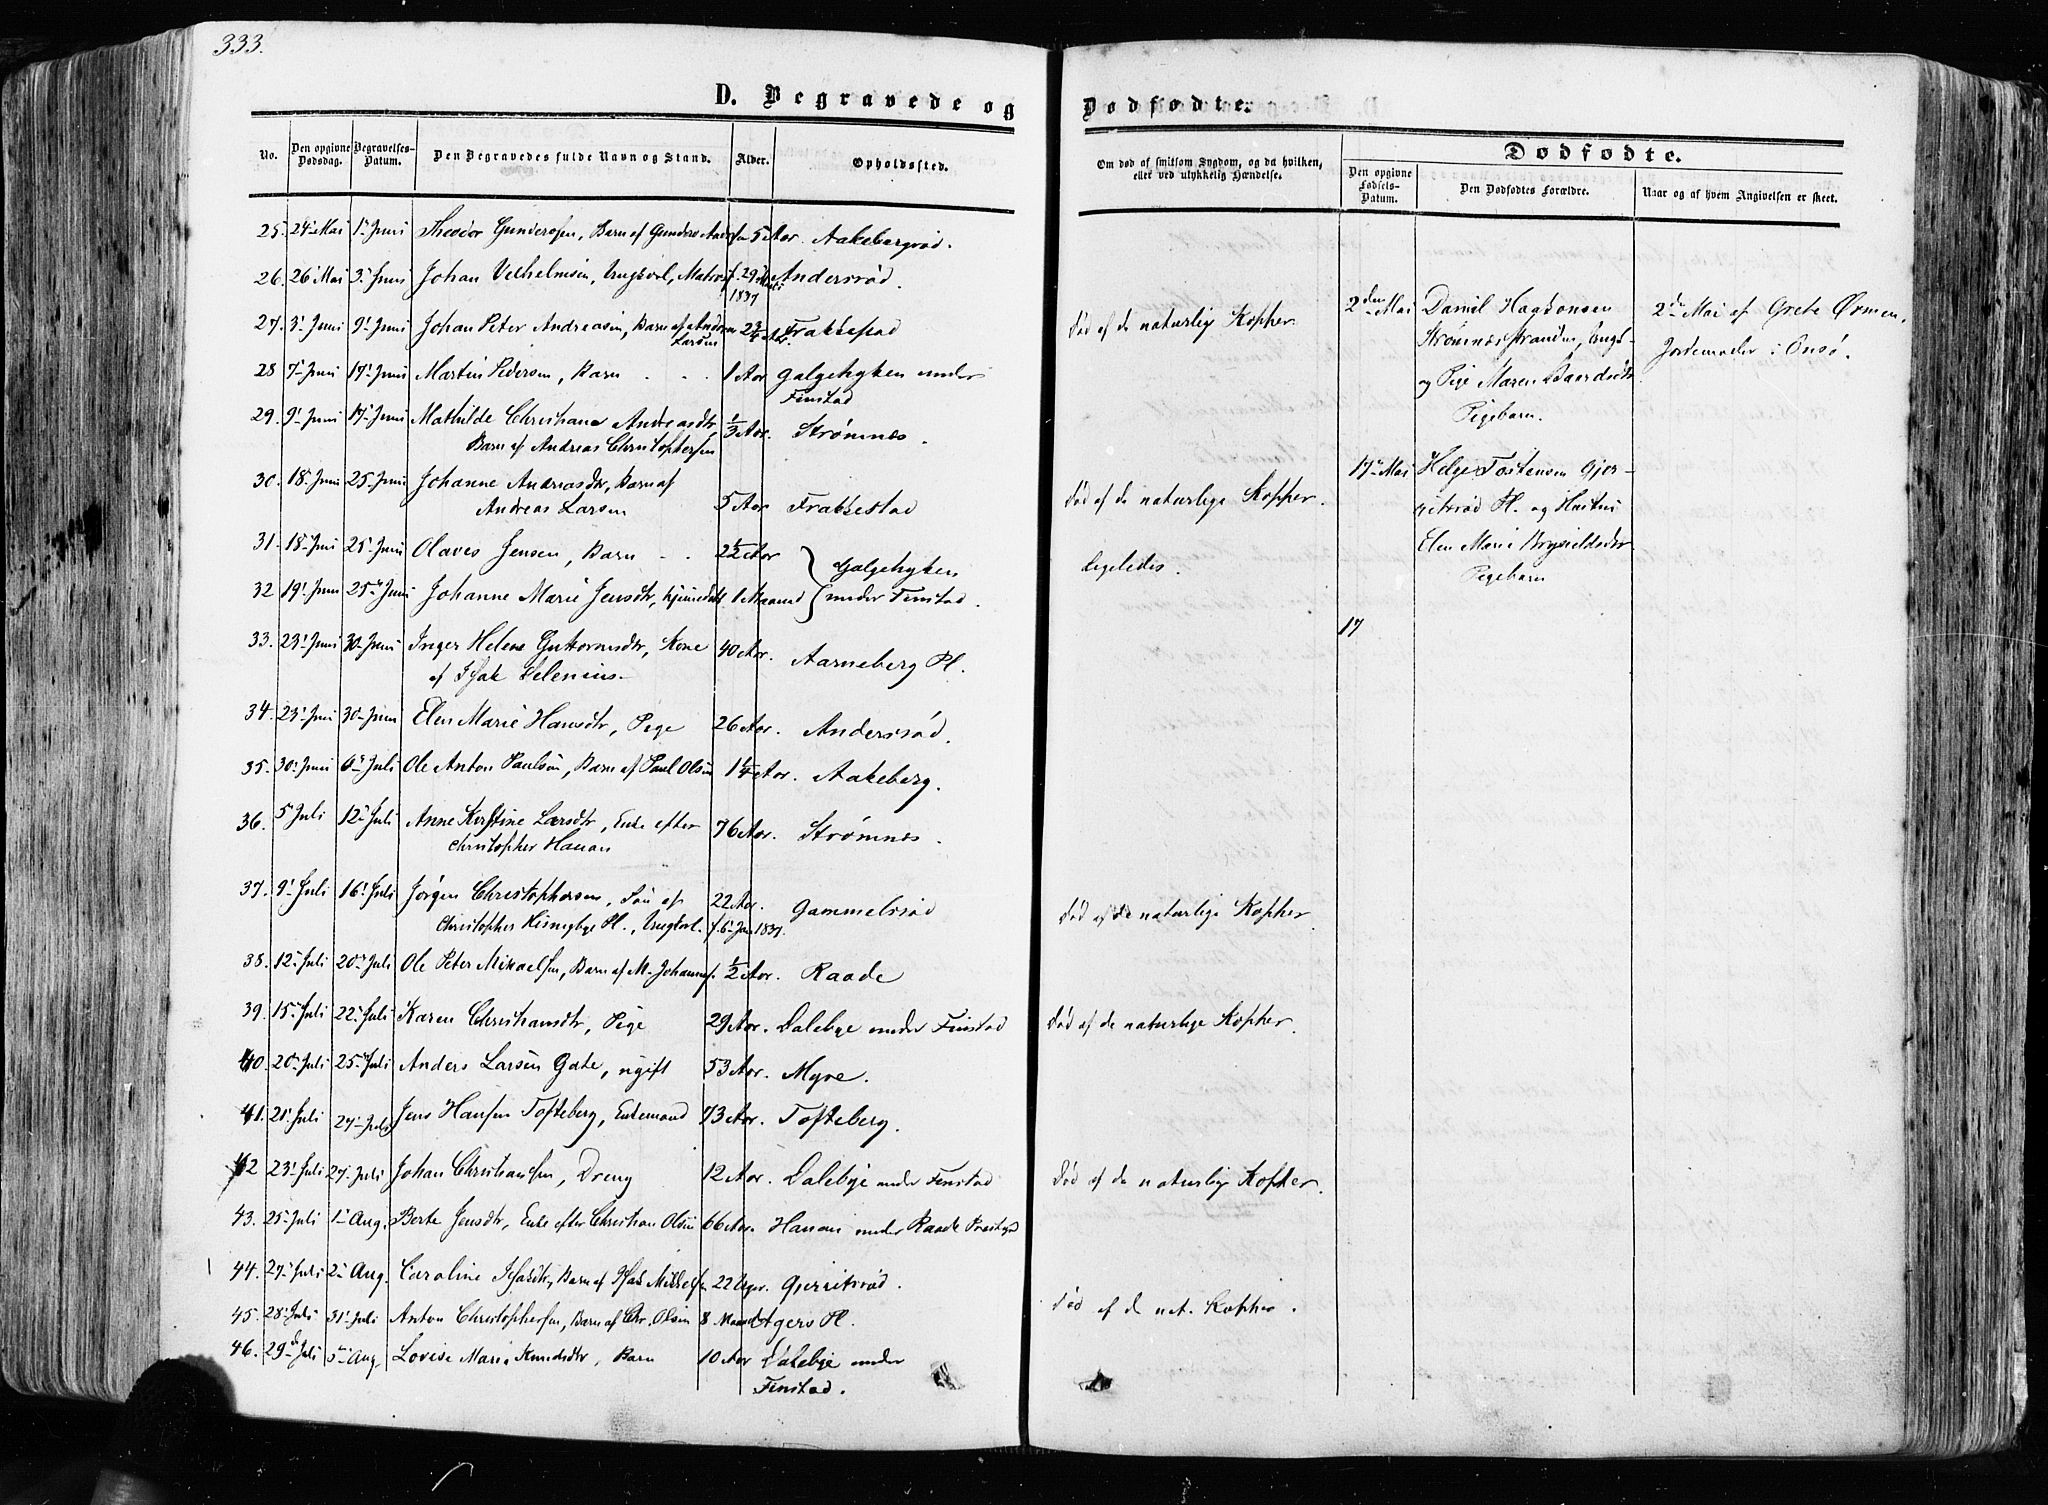 333.
D. Begravede og
Dødfødte.
No.
Den opgivne Dødsdag.
Begravelses-Datum.
Den Begravedes fulde Navn og Stand.
Alder.
Opholdssted.
Om død af smitsom Sygdom, og da hvilken,
eller ved ulykkelig Hændelse.
Dødfødte.
Den opgivne Fødsels-Datum.
Den Dødfødtes Forældre.
Naar og af hvem Angivelsen er skeet.
25. 24 Mai 1 Juni Theodor Gundersen, Barn af Gunder 5 Aar. Aakebergrød.
26. 26 Mai 3 Juni Johan Vilhelmsen, Ungkarl, Matros f. 29 1837 Andersrød.
27. 3 Juni 9 Juni Johan Peter Andreasen, Barn af Andreas 2 3/4 Aar. Frakkestad Død af de naturlig Kopper.
Larsen
28 7 Juni 17 Juni Martin Pedersen, Barn 1 Aar Galgehyken under
Finstad
29. 9 Juni 17 Juni Mathilde Christiane Andreasdtr, 1/3 Aar. Strømnes.
Barn af Andreas Christophersen
30. 18 Juni 25 Juni Johanne Andreasdtr, Barn af
Andreas Larsen 5 Aar Frakkestad Død af de naturlige Kopper.
31. 18 Juni 25 Juni Olaves Jensen, Barn 2 1/2 Aar Galgehyken ligeledes.
32 19 Juni 25 Juni Johanne Marie Jensdtr, hjemmedøbt 1 Maaned under Finstad.
33. 23 Juni 30 Juni Inger Helene Guttormsdtr, Kone 40 Aar. Aarneberg Pl.
af Isak Helenius
34. 23 Juni 30 Juni Elen Marie Hansdtr, Pige 26 Aar. Andersrød.
35. 30 Juni 6 Juli Ole Anton Paulsen, Barn af Paul Olsen 1 1/4 Aar. Aakeberg.
36. 5 Juli 12 Juli Anne Kirstine Larsdtr, Enke efter 76 Aar. Strømnes.
Christopher Hanan
37. 9 Juli 16 Juli Jørgen Christophersen, Søn af 22 Aar. Gammelsrød Død af de naturlige Kopper.
Christopher Pl., Ungkarl. f. 6 Jan 1837.
38. 12 Juli 20 Juli Ole Peter Mikaelsen, Barn af M. Johannes. 1/2 Aar. Raade
39. 15 Juli 22 Juli Karen Christiansdtr, Pige 29 Aar. Dalebye under Finstad Død af de naturlige Kopper.
40 20 Juli 25 Juli Anders Larsen Gate, ugift 53 Aar. Myre.
41. 21 Juli 27 Juli Jens Hansen Tofteberg, Enkemand 73 Aar. Tofteberg.
42 23 Juli 27 Juli Johan Christiansen, Dreng 12 Aar. Dalebye under Finstad Død af de naturlige Kopper.
43. 25 Juli 1 Aug. Berte Jensdtr, Enke efter Christian Olsen 66 Aar. Hanan under Raade
44. 27 Juli 2 Aug. Caroline Isaksdtr, Barn af Isak Mikkelsen 22 Uger. Gjerritsrød.
45. 28 Juli 31 Juli Anton Christophersen, Barn af Chr. Olsen 8 Maan Agers Pl. Død af de nat. Kopper.
46. 29 Juli 5 Aug. Lovise Marie Knudsdtr, Barn 10 Aar Dalebye under
Finstad.
2den Mai Daniel Haagensen 2de Mai af Grete Ørmen,
Strømnesstranden, Ungk. Jordemoder i Onsø.
og Pige Maren Baardsdtr
Pigebarn.
17 Mai Helge Tostensen Gjer-
ritsrød Pl. og Hustru
Elen Marie
Pigebarn
17